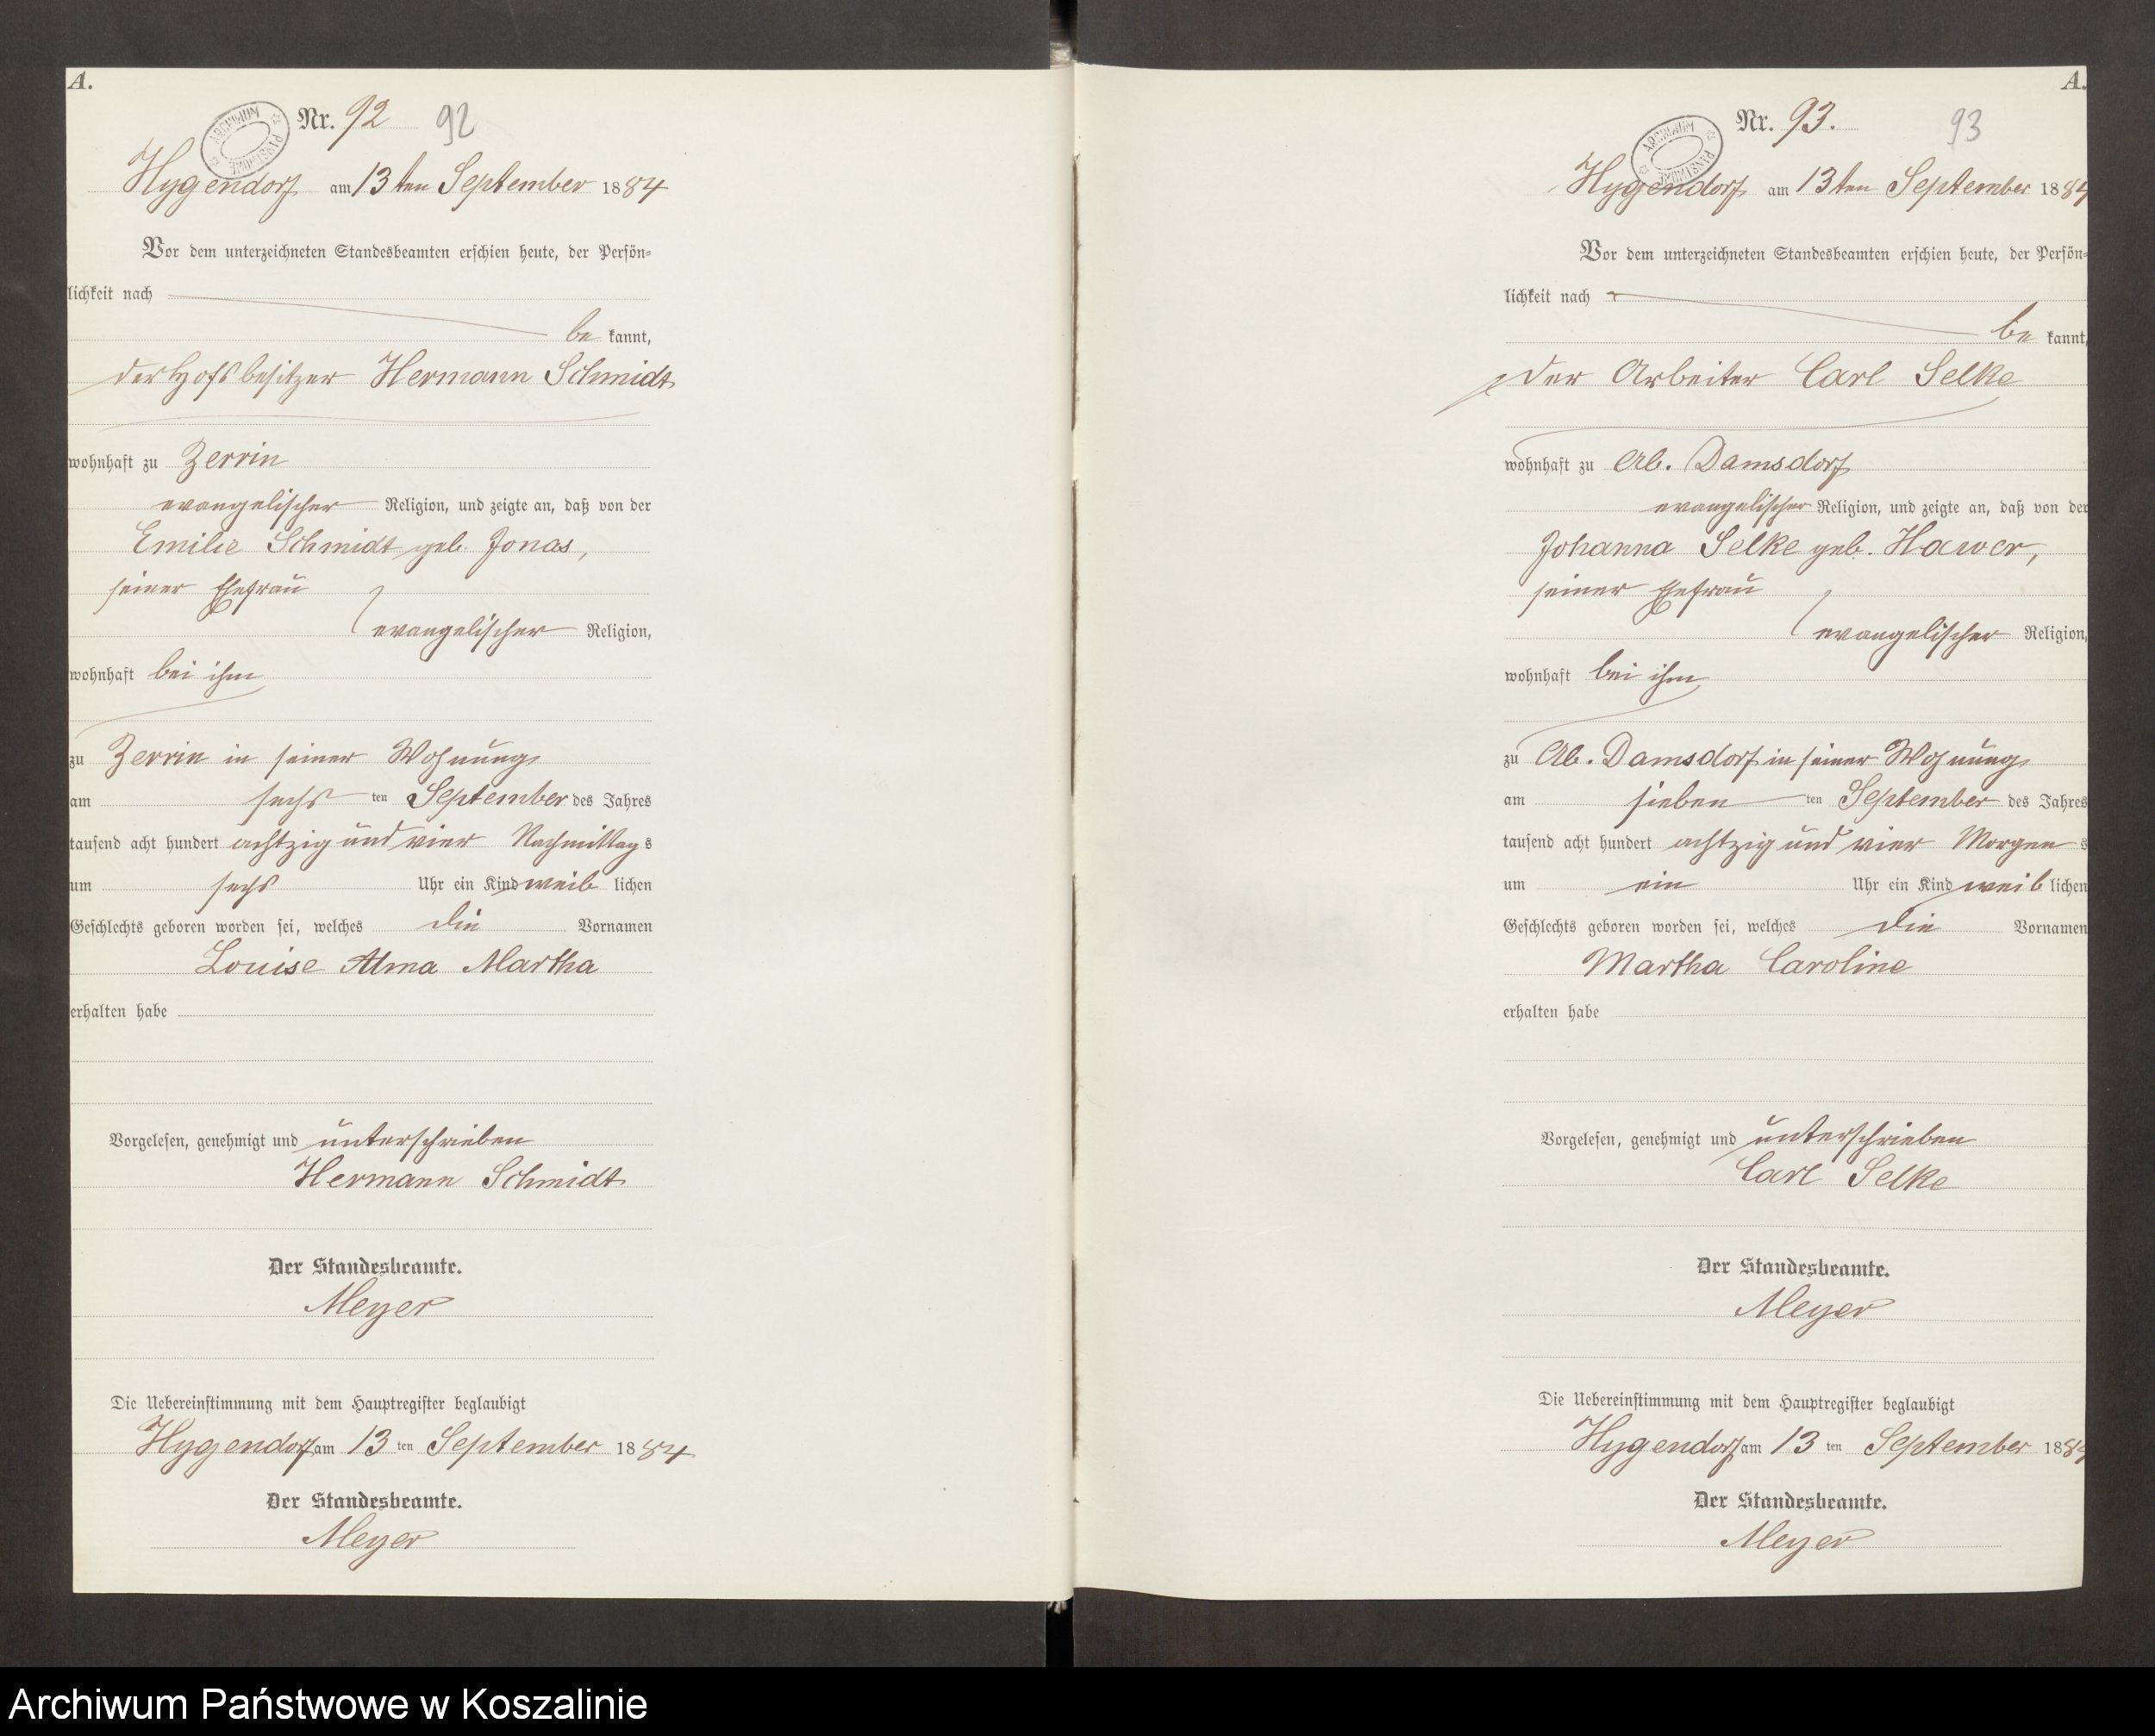 A.
Nr. 92 92
ARCHIWUM PAŃSTWOWE
Hygendorf am 13ten September 1884
Vor dem unterzeichneten Standesbeamten erschien heute, der Persön=
lichkeit nach
be kannt,
der Hofsbesitzer Hermann Schmidt
wohnhaft zu Zerrin
evangelischer Religion, und zeigte an, daß von der
Emilie Schmidt geb. Jonas,
seiner Ehefrau
evangelischer Religion,
wohnhaft bei ihm
zu Zerrin in seiner Wohnung
am sechs ten September des Jahres
tausend acht hundert achtzig und vier Nachmittag s
um sechs Uhr ein Kind weib lichen
Geschlechts geboren worden sei, welches die Vornamen
Louise Alma Martha
erhalten habe
Vorgelesen, genehmigt und unterschrieben
Hermann Schmidt
Der Standesbeamte.
Meyer
Die Uebereinstimmung mit dem Hauptregister beglaubigt
Hygendorf am 13 ten September 1884
Der Standesbeamte.
Meyer
A.
Nr. 93. 93
ARCHIWUM PAŃSTWOWE
Hygendorf am 13ten September 1884
Vor dem unterzeichneten Standesbeamten erschien heute, der Persön=
lichkeit nach
be kannt,
der Arbeiter Carl Selke
wohnhaft zu Ab. Damsdorf
evangelischer Religion, und zeigte an, daß von der
Johanna Selke geb. Hawer,
seiner Ehefrau
evangelischer Religion,
wohnhaft bei ihm
zu Ab. Damsdorf in seiner Wohnung
am sieben ten September des Jahres
tausend acht hundert achtzig und vier Morgen s
um ein Uhr ein Kind weib lichen
Geschlechts geboren worden sei, welches die Vornamen
Martha Caroline
erhalten habe
Vorgelesen, genehmigt und unterschrieben
Carl Selke
Der Standesbeamte.
Meyer
Die Uebereinstimmung mit dem Hauptregister beglaubigt
Hygendorf am 13 ten September 1884
Der Standesbeamte.
Meyer
Archiwum Państwowe w Koszalinie